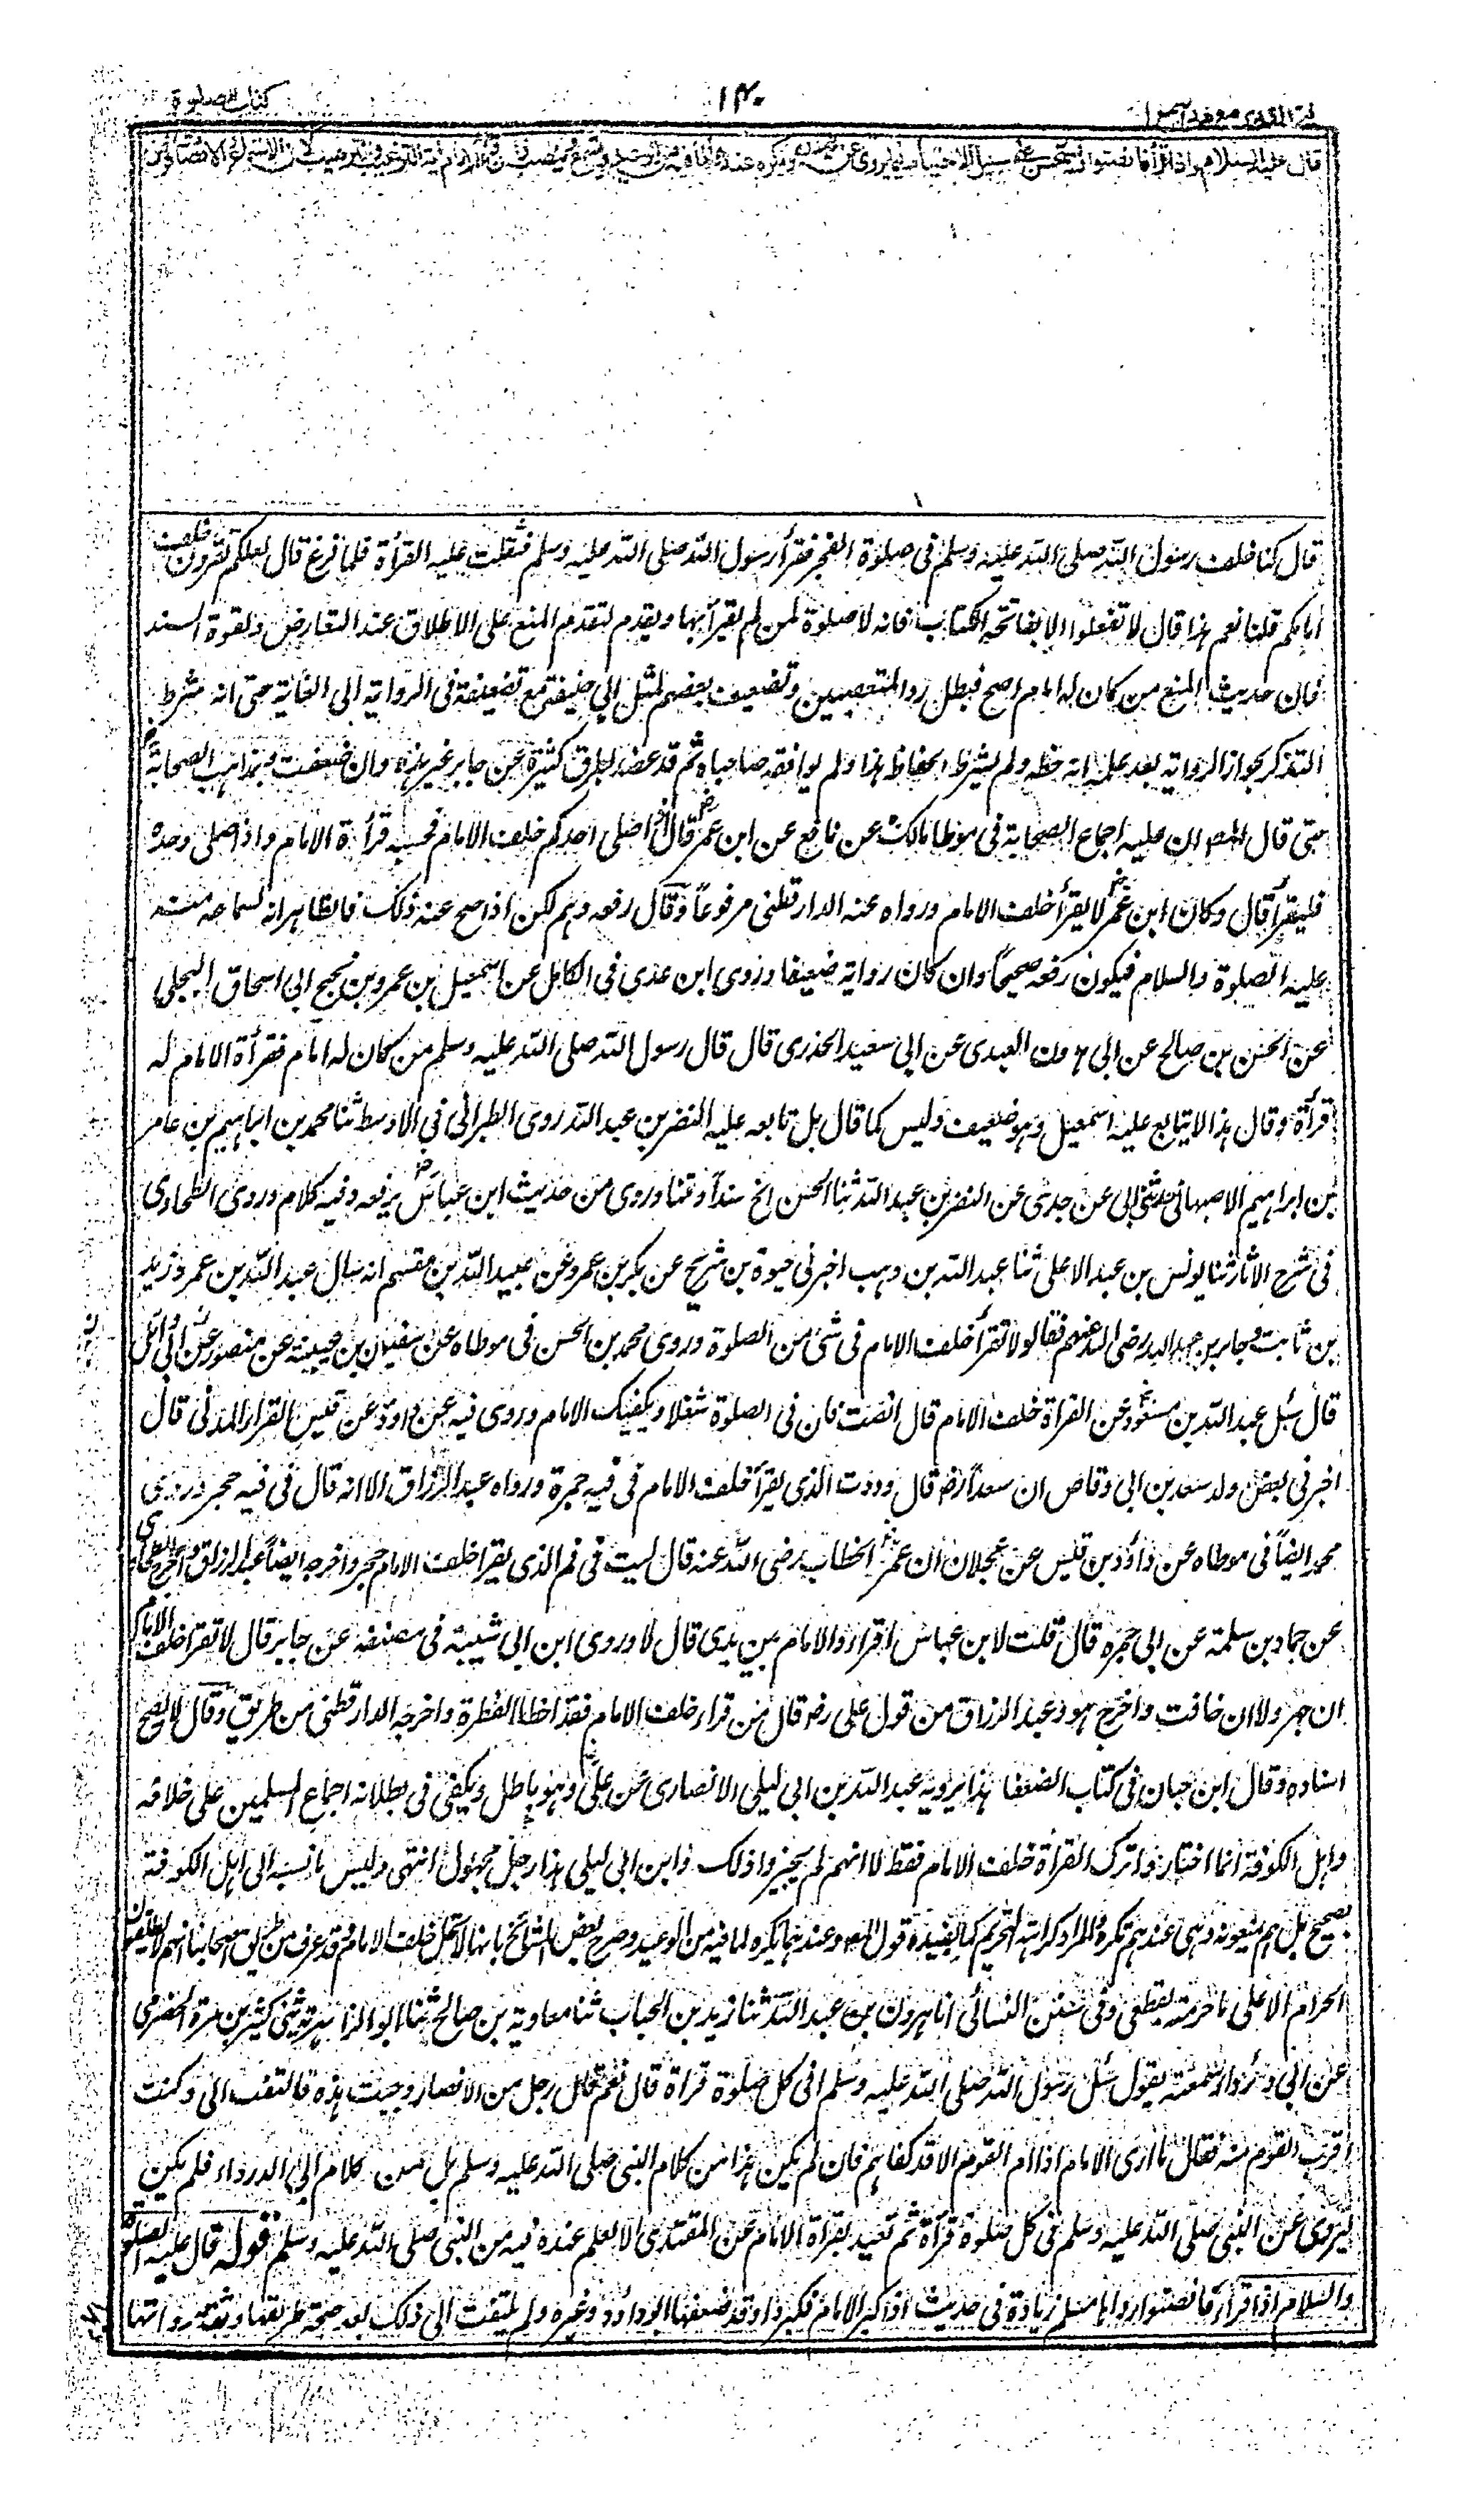 كتاب الصلوة
١٤٠
فتح القدير مع هدايه جلد ١
قال عليه السلام واذا قرأ فانصتوا ويستحسن على سبيل الاحتياط فيما يروى عن محمد ويكره عندهما لما فيه من الوعيد ويستمع وينصت وان قرأ الامام اية الترغيب والترهيب لان الاستماع والانصات فرض
قال كنا خلف رسول الله صلى الله عليه وسلم فى صلوة الفجر فقرأ رسول الله صلى الله عليه وسلم فثقلت عليه القرأة فلما فرغ قال لعلكم تقرؤن خلف
امامكم قلنا نعم هذا قال لا تفعلوا الا بفاتحة الكتاب فانه لا صلوة لمن لم يقرأ بها ويقدم لتقدم المنع على الاطلاق عند التعارض ولقوة السند
فان حديث المنع من كان له امام اصح فبطل رد المتعصبين وتضعيف بعضهم لمثل ابى حنيفة مع تضييقه فى الرواية الى الغاية حتى انه شرط
التذكر لجواز الرواية بعد علمه انه خطه ولم يشترط الحفاظ هذا ولم يوافقه صاحباه ثم قد عضد بطرق كثيرة عن جابر غير هذه وان ضعفت وبمذاهب الصحابة رض
حتى قال المص ان عليه اجماع الصحابة فى موطا مالك عن نافع عن ابن عمر رض قال اذا صلى احدكم خلف الامام فحسبه قرأة الامام واذا صلى وحده
فليقرأ قال وكان ابن عمر رض لا يقرأ خلف الامام ورواه عنه الدارقطنى مرفوعاً وقال رفعه وهم لكن اذا صح عنه ذلك فالظاهر انه لسماعه منه
عليه الصلوة والسلام فيكون رفعه صحيحاً وان كان رواته ضعيفا وروى ابن عدى فى الكامل عن اسمعيل بن عمرو بن نجيح ابى اسحاق البجلى
عن الحسن بن صالح عن ابى هرون العبدى عن ابى سعيد الخدرى قال قال رسول الله صلى الله عليه وسلم من كان له امام فقرأة الامام له
قرأة وقال هذا لا يتابع عليه اسمعيل وهو ضعيف وليس كما قال بل تابعه عليه النضر بن عبد الله روى الطبرانى فى الاوسط ثنا محمد بن ابراهيم بن عامر
بن ابراهيم الاصبهانى حدثنى ابى عن جدى عن النضر بن عبد الله ثنا الحسن الخ سنداً ومتنا وروى من حديث ابن عباس رض يرفعه وفيه كلام وروى الطحاوى
فى شرح الاثار ثنا يونس بن عبد الاعلى ثنا عبد الله بن وهب اخبرنى حيوة بن شريح عن بكر بن عمرو عن عبيد الله بن مقسم انه سال عبد الله بن عمر وزيد
بن ثابت وجابر بن عبد الله رضى الله عنهم فقالوا لا تقرأ خلف الامام فى شئ من الصلوة وروى محمد بن الحسن فى موطاه عن سفيان بن عيينة عن منصور عن ابى وائل
قال سئل عبد الله بن مسعود رض عن القرأة خلف الامام قال انصت فان فى الصلوة شغلا ويكفيك الامام وروى فيه عن داود عن قيس الفراء المدنى قال
اخبرنى بعض ولد سعد بن ابى وقاص ان سعداً رض قال وددت الذى يقرأ خلف الامام فى فيه جمرة ورواه عبد الرزاق الا انه قال فى فيه حجر وروى
محمد ايضاً فى موطاه عن داود بن قيس عن عجلان ان عمر بن الخطاب رضى الله عنه قال ليت فى فم الذى يقرأ خلف الامام حجر واخرجه ايضاً عبد الرزاق واخرج الطحاوى
عن حماد بن سلمة عن ابى جمره قال قلت لابن عباس اقرأ والامام بين يدى قال لا وروى ابن ابى شيبة فى مصنفه عن جابر قال لا تقرأ خلف الامام
ان جهر ولا ان خافت واخرج هو وعبد الرزاق من قول على رض قال من قرأ خلف الامام فقد اخطا الفطرة واخرجه الدارقطنى من طريق وقال لا يصح
اسناده وقال ابن حبان فى كتاب الضعفا هذا يرويه عبد الله بن ابى ليلى الانصارى عن على وهو باطل ويكفى فى بطلانه اجماع المسلمين على خلافه
واهل الكوفة انما اختاروا ترك القرأة خلف الامام فقط لا انهم لم يجيزوا ذلك وابن ابى ليلى هذا رجل مجهول انتهى وليس ما نسبه الى اهل الكوفة
بصحيح بل هم يمنعونه وهى عندهم تكره والمراد كراهة التحريم كما يفيده قول المص وعندهما يكره لما فيه من الوعيد وصرح بعض المشائخ بانها لا تحل خلف الامام وقد عرف من طريق اصحابنا انهم لا يطلقون
الحرام الا على ما حرمته بقطعى وفى سنن النسائى انا هرون بن عبد الله ثنا زيد بن الحباب ثنا معاوية بن صالح ثنا ابو الزاهرية ثنى كثير بن مرة الحضرمى
عن ابى الدرداء سمعته يقول سئل رسول الله صلى الله عليه وسلم افى كل صلوة قرأة قال نعم قال رجل من الانصار وجبت هذه فالتفت الى وكنت
اقرب القوم منه فقال ما ارى الامام اذا ام القوم الا قد كفاهم فان لم يكن هذا من كلام النبى صلى الله عليه وسلم بل من كلام ابى الدرداء فلم يكن
ليروى عن النبى صلى الله عليه وسلم فى كل صلوة قرأة ثم يعتد بقرأة الامام عن المقتدى الا لعلم عنده فيه من النبى صلى الله عليه وسلم قوله قال عليه الصلوة
والسلام اذا قرأ فانصتوا رواها مسلم زيادة فى حديث اذا كبر الامام فكبروا وقد ضعفها ابو داود وغيره ولم يلتفت الى ذلك بعد صحة طريقها وثقة رواتها